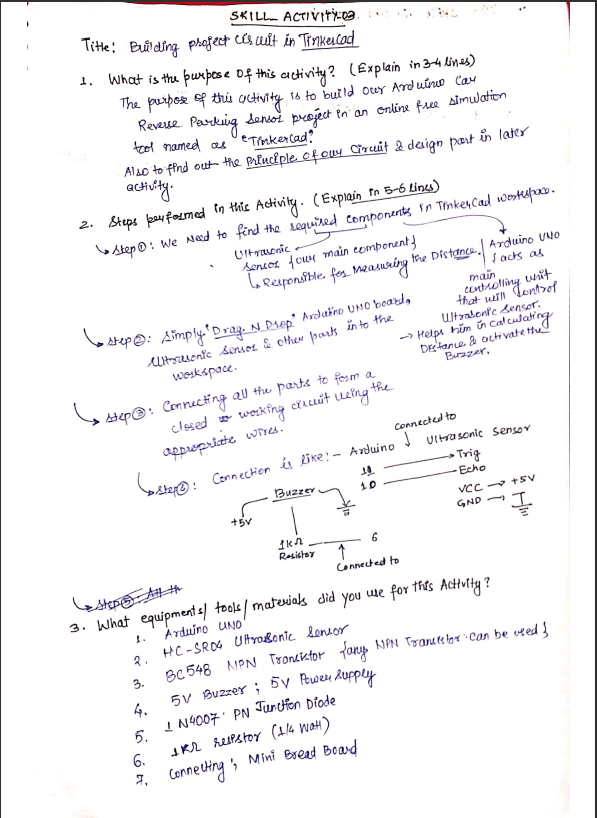 SKILL_ ACTIVITY-03
Title: Building project circuit in TinkerCad
1. What is the purpose of this activity? (Explain in 3-4 lines)
The purpose of this activity is to build our Arduino Car
Reverse Parking Sensor project in an online free simulation
tool named as "TinkerCad".
Also to find out the Principle of our Circuit & design part in later
activity.
2. Steps performed in this Activity. (Explain in 5-6 lines)
Step ①: We need to find the required components in TinkerCad workspace.
Ultrasonic
Sensor {our main component}
Responsible for Measuring the Distance.
Arduino UNO
{acts as
main
controlling unit
that will control
Ultrasonic Sensor.
→ Helps him in calculating
Distance & activate the
Buzzer.
Step ②: Simply "Drag N Drop" Arduino UNO board,
Ultrasonic Sensor & other parts into the
workspace.
Step ③: Connecting all the parts to form a
closed working circuit using the
appropriate wires.
Step ④: Connection is like:- Arduino
Connected to
Ultrasonic Sensor
11 → Trig
10 — Echo
VCC → +5V
GND →
Buzzer
+5V
1kΩ
Resistor
6
Connected to
Step ⑤:
3. What equipments/ tools/ materials did you use for this Activity?
1. Arduino UNO
2. HC-SR04 Ultrasonic Sensor
3. BC548 NPN Transistor {any NPN Transistor can be used}
4. 5V Buzzer ; 5V Power Supply
5. 1N4007 PN Junction Diode
6. 1KΩ resistor (1/4 Watt)
7. Connecting ; Mini Bread Board